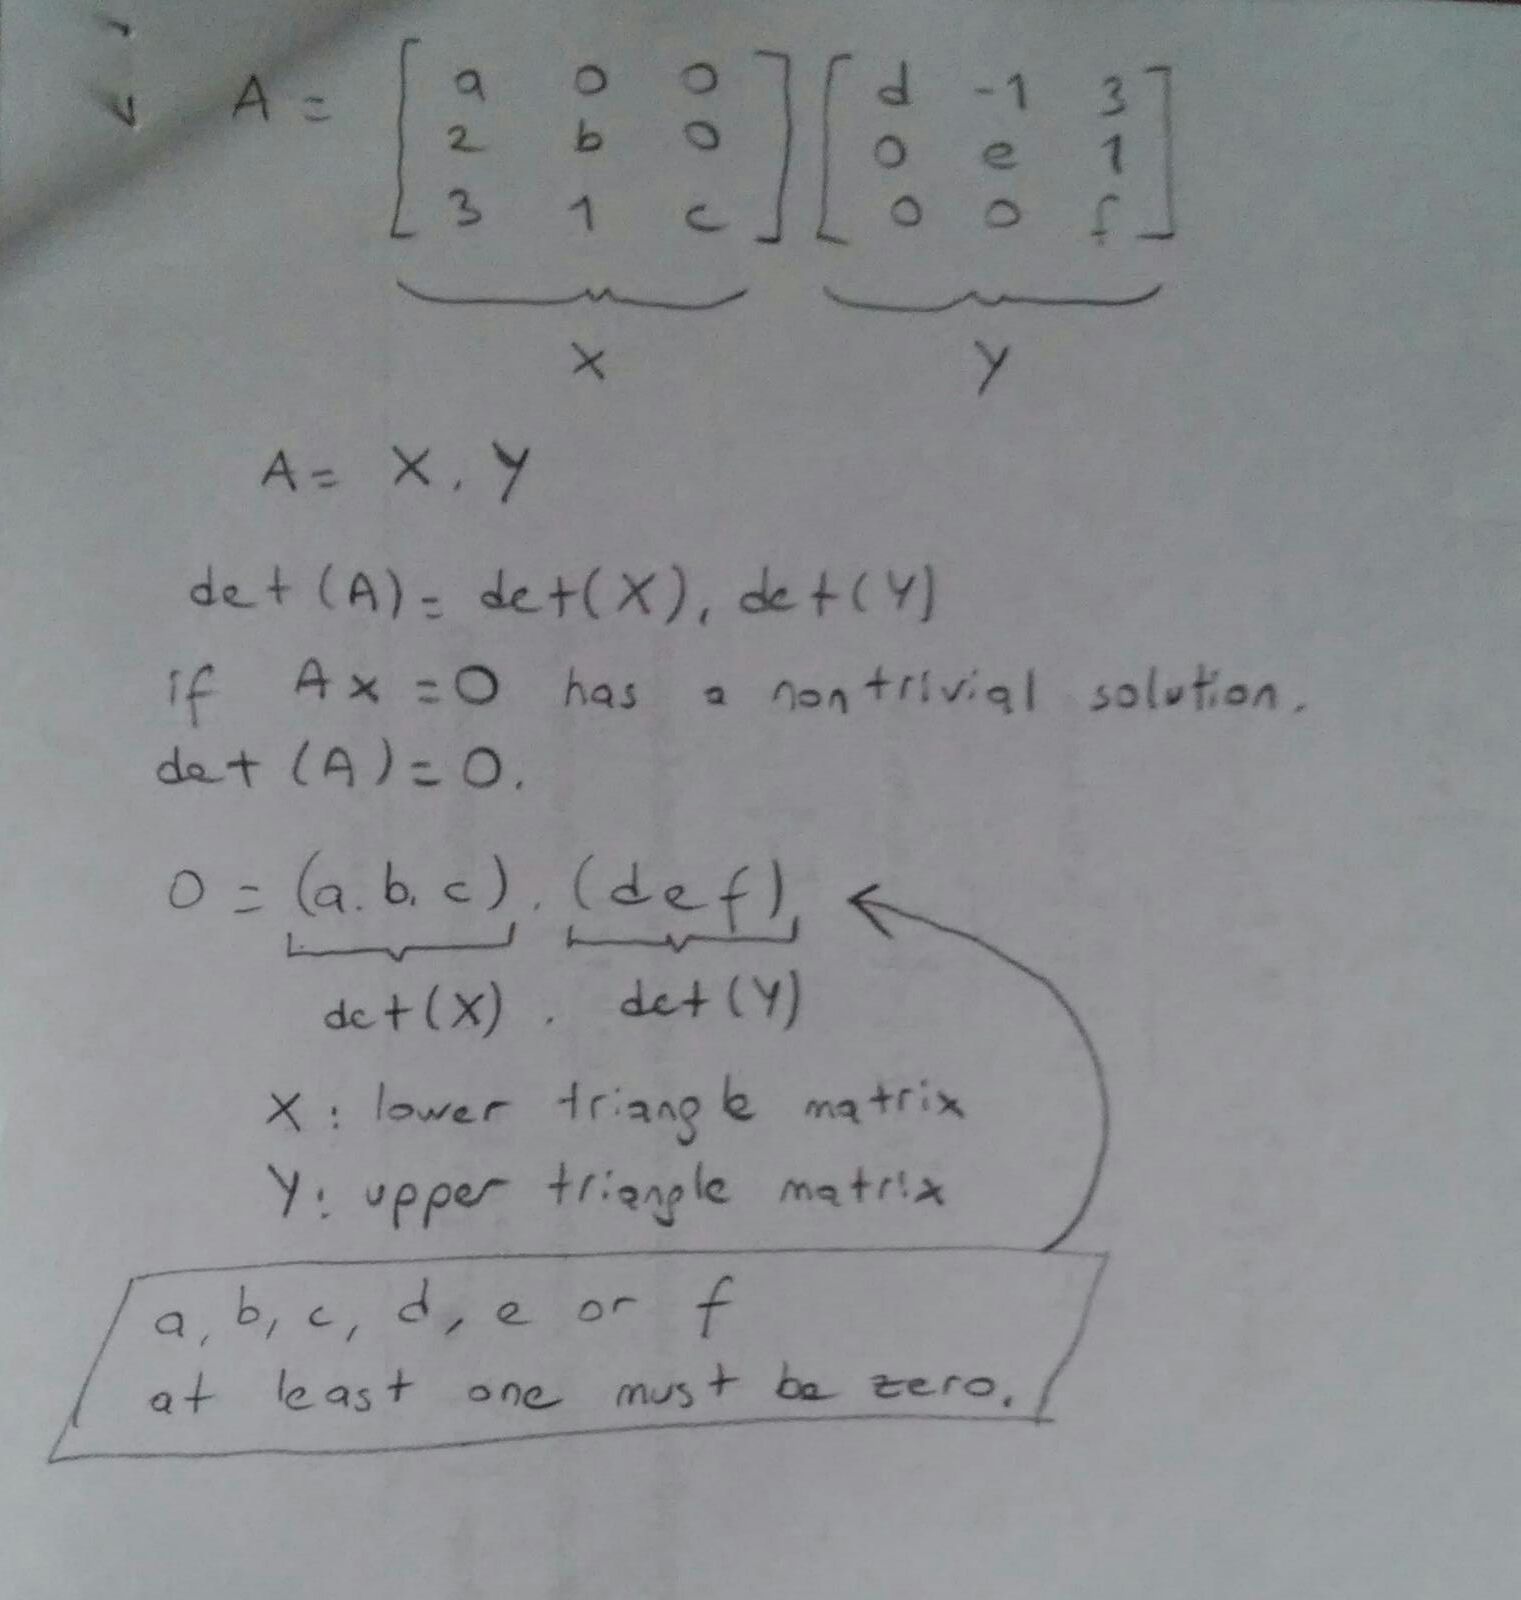 A = [ a 0 0 ] [ d -1 3 ]
[ 2 b 0 ] [ 0 e 1 ]
[ 3 1 c ] [ 0 0 f ]
X Y
A = X . Y
det (A) = det(X) . det(Y)
if Ax = 0 has a nontrivial solution.
det (A) = 0.
0 = (a.b.c) . (def)
det(X) . det(Y)
X : lower triangle matrix
Y : upper triangle matrix
a, b, c, d, e or f
at least one must be zero.